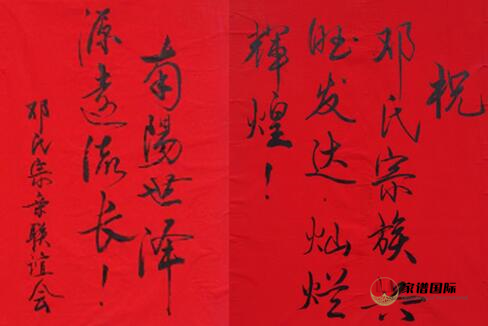 祝
邓氏宗族兴
旺发达.灿烂
輝煌！
南陽世泽
源远流长！
邓氏宗亲联谊会
家谱国际